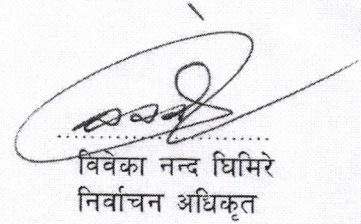 विवेका नन्द घिमिरे
निर्वाचन अधिकृत